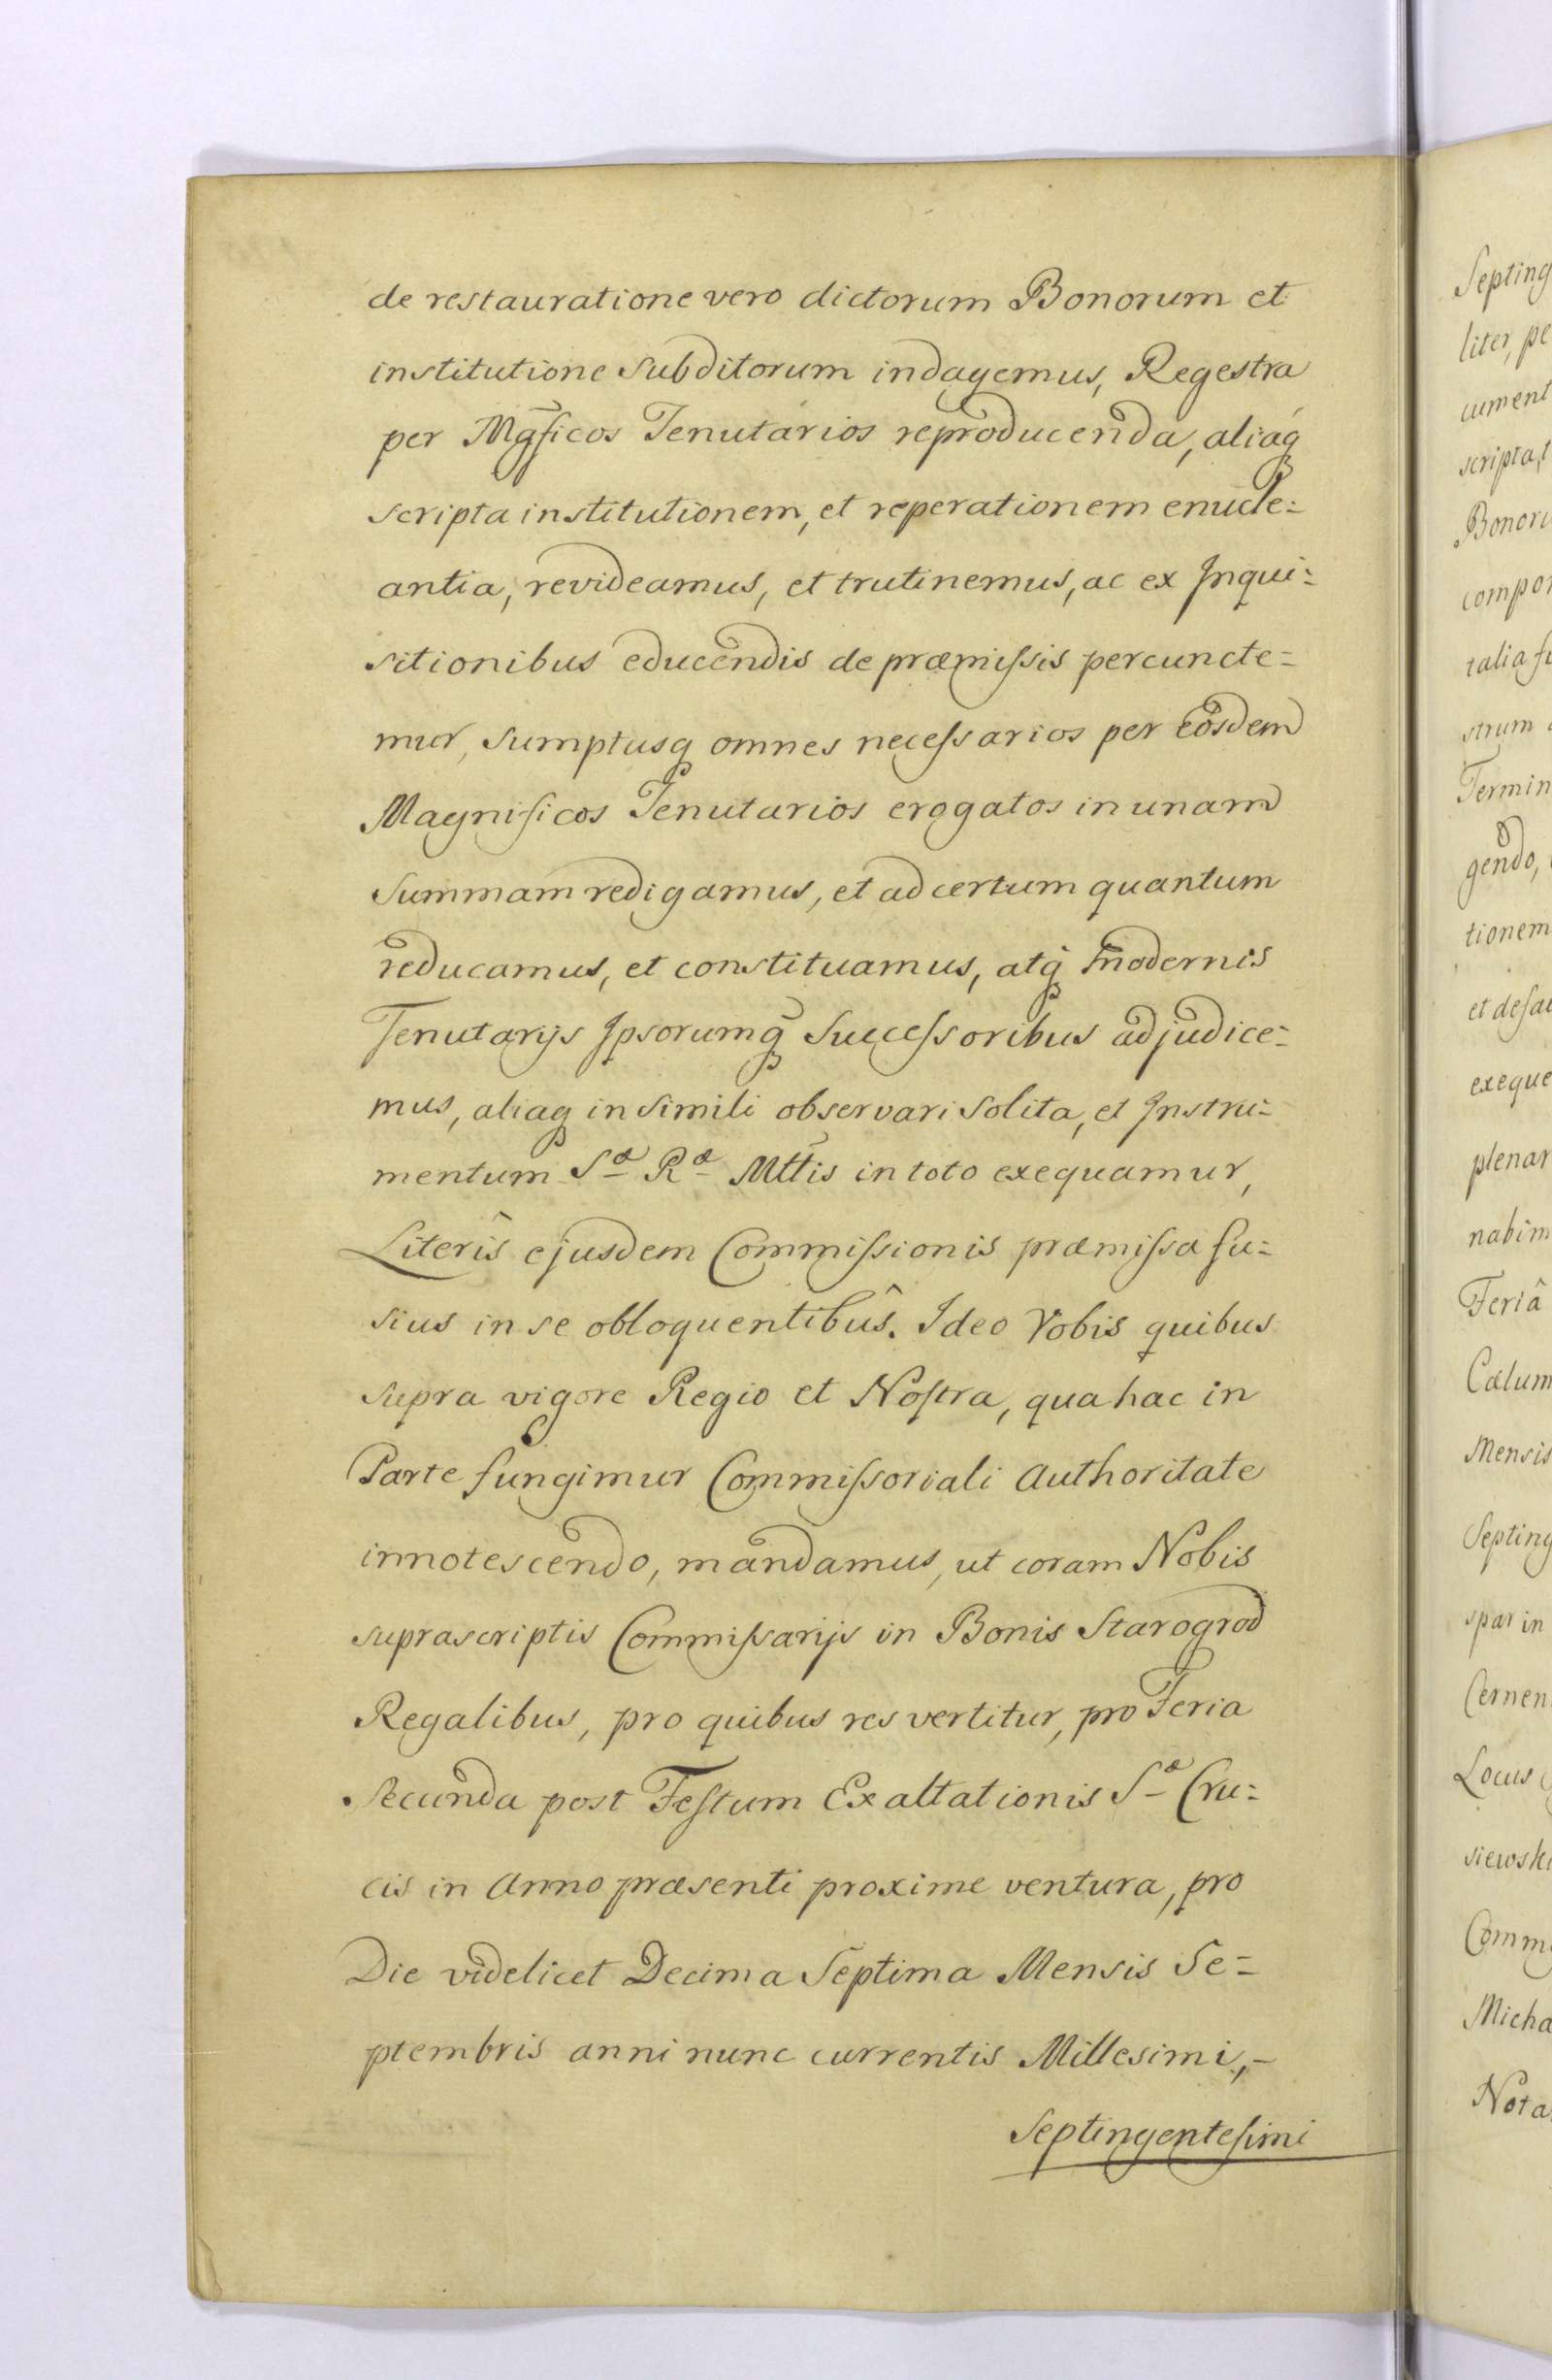 de restauratione vero dictorum Bonorum et
institutione Subditorum indagemus, Regestra
per Mgficos Tenutarios reproducenda, aliaq
scripta institutionem, et reperationem enucle=
antia, revideamus, et trutinemus, ac ex Inqui=
sitionibus educendis de præmissis percuncte=
mur, Sumptusq omnes necessarios per Eosdem
Magnificos Tenutarios erogatos in unam
Summam redigamus, et ad certum quantum
reducamus, et constituamus, atq modernis
Tenutarijs Ipsorumq Successoribus adjudice=
mus, aliaq in Simili observari Solita, et Instru=
mentum Sæ Ræ Mttis in toto exequamur,
Literîs ejusdem Commissionis præmissa fu=
sius in se obloquentibûs. Ideo Vobis quibus
supra vigore Regio et Nostra, qua hac in
Parte fungimur Commissoriali Authoritate
innotescendo, mandamus, ut coram Nobis
suprascriptis Commissarijs in Bonis Starogrod
Regalibus, pro quibus res vertitur, pro Feria
Secunda post Festum Exaltationis Sæ Cru=
cis in Anno præsenti proxime ventura, pro
Die videlicet Decima Septima Mensis Se=
ptembris anni nunc currentis Millesimi,-
Septingentesimi
Septing
liter, pe
cument
scripta, t
Bonoru
compor
talia fu
strum
Termin
gendo,
tionem
et desa
exeque
plenar
nabim
Feriâ
Calum
Mensis
Septing
spar in
Cernen
Locus
siewski
Commi
Micha
Nota